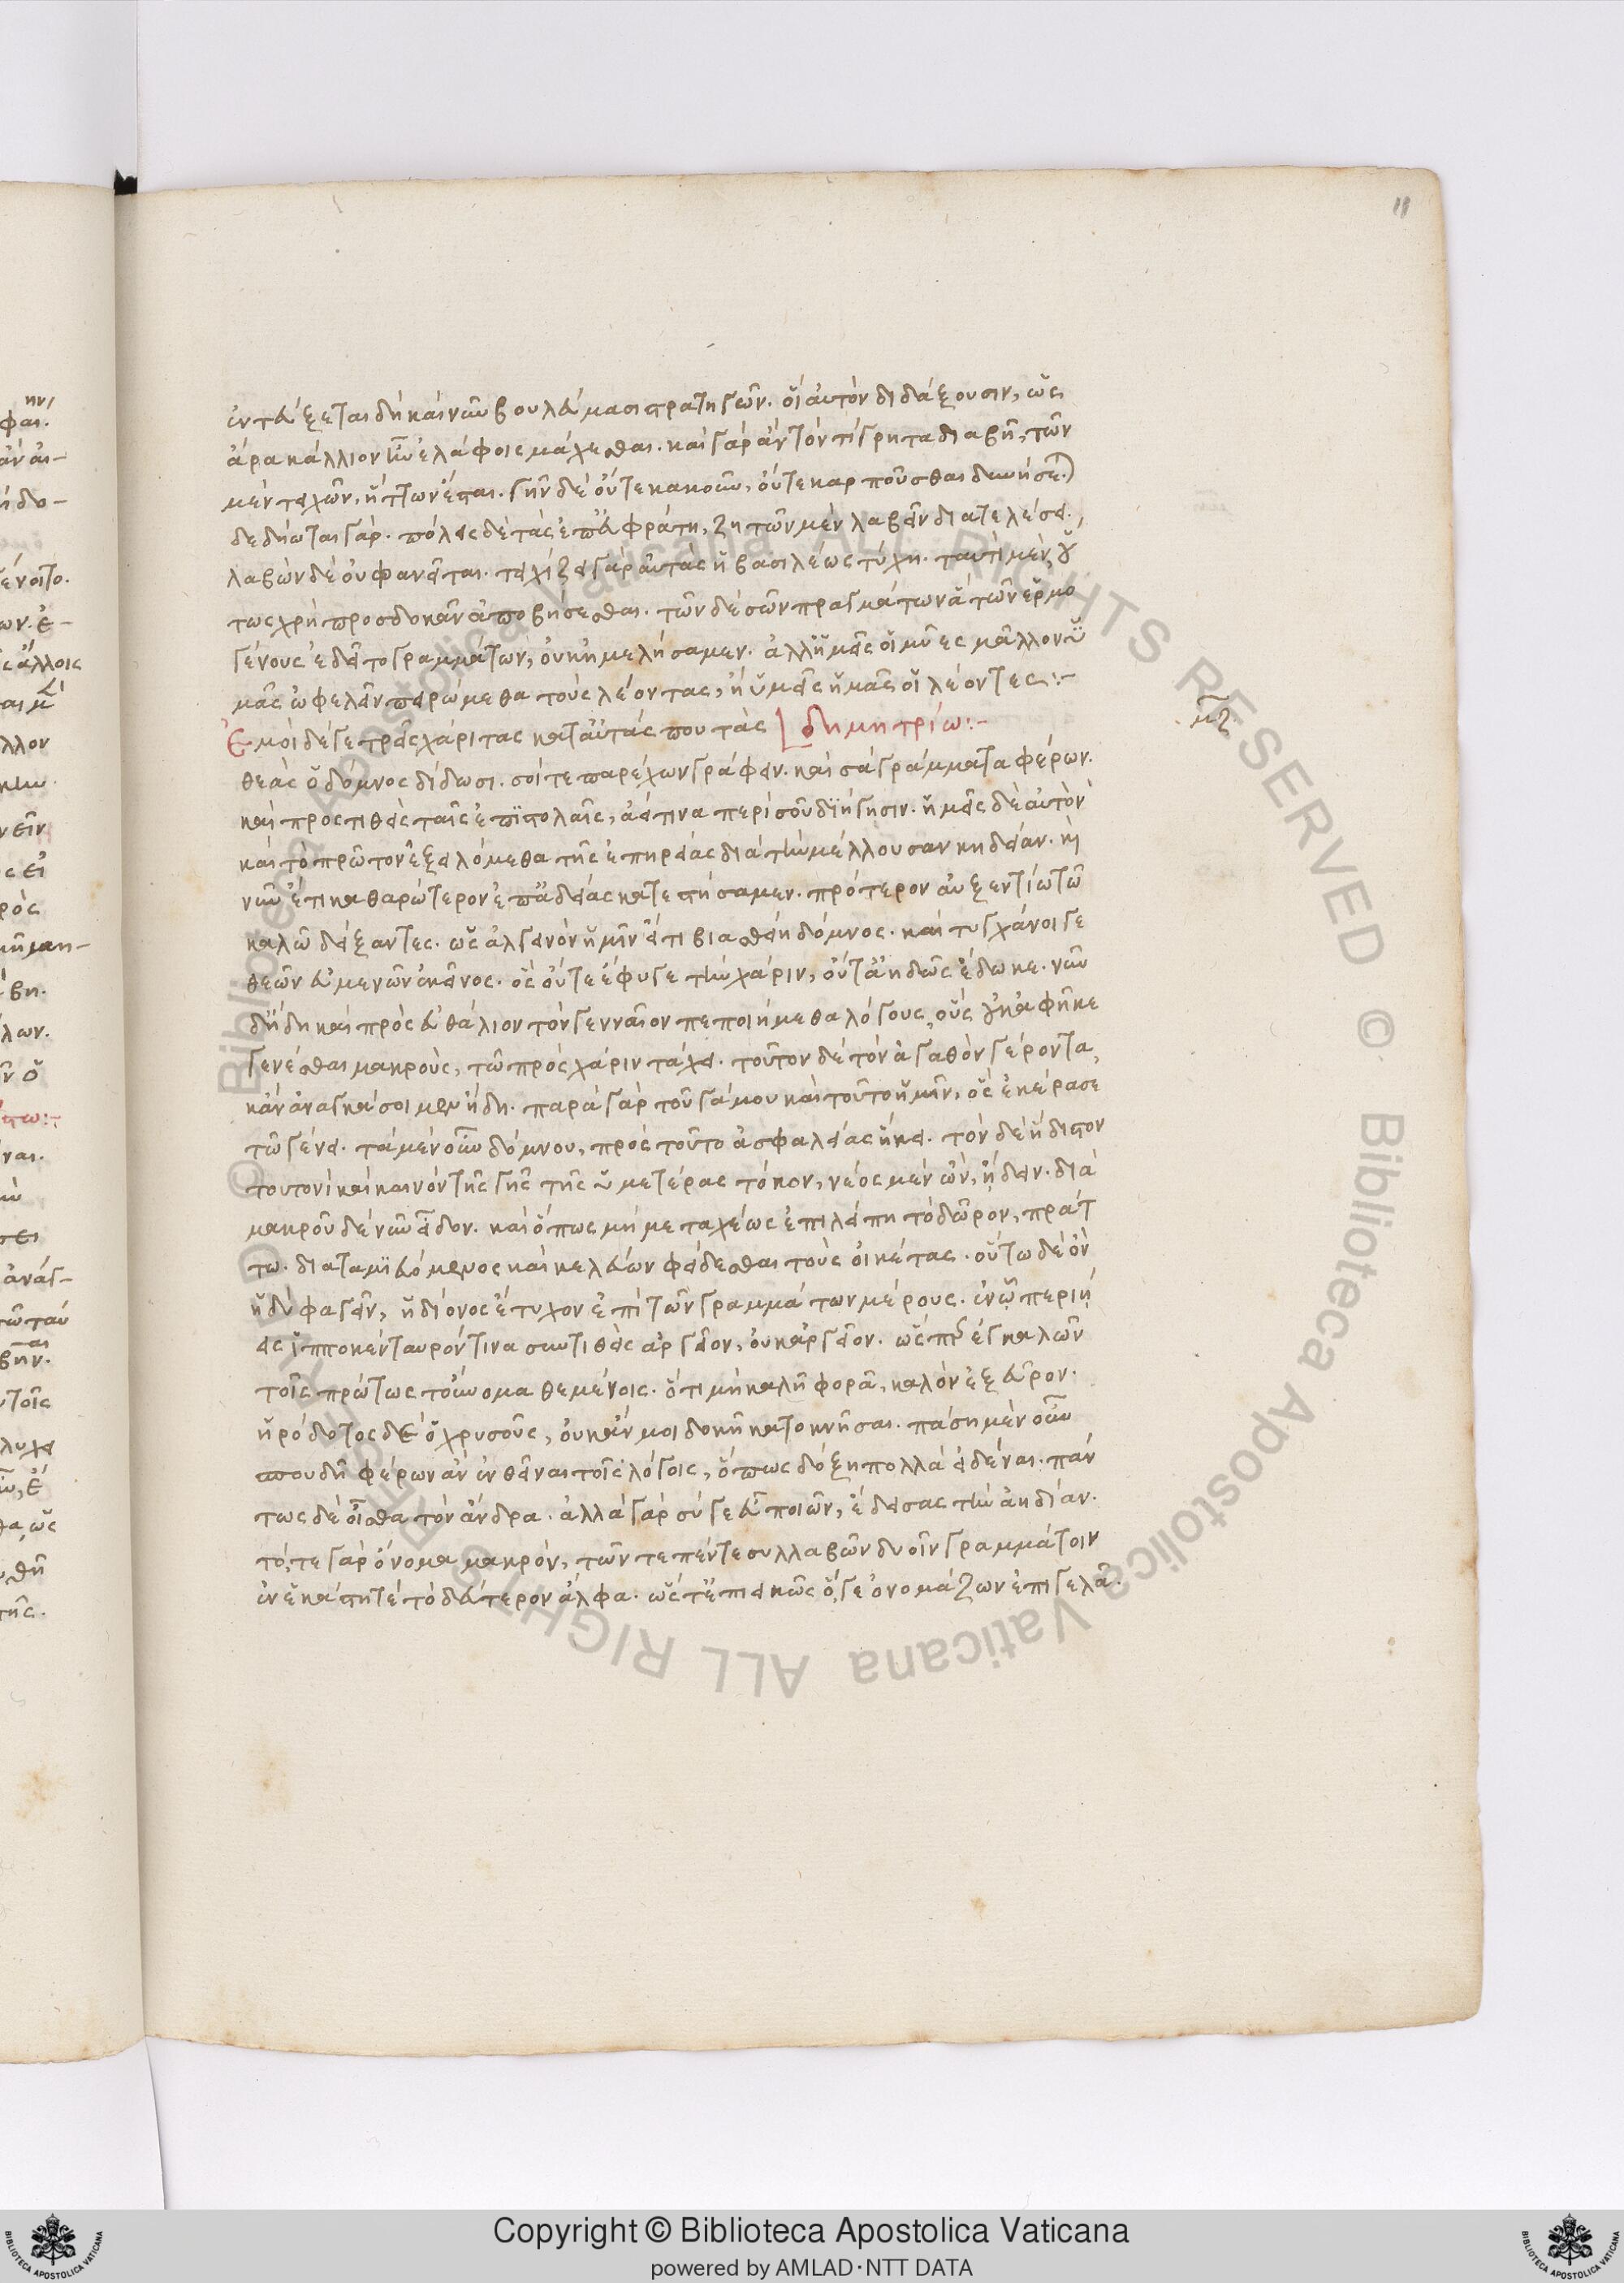 11
ἐντεύξεται δὴ καὶ νῦν βουλεύμασι στρατηγῶν. οἳ αὐτὸν διδάξουσιν, ὡς
ἄρα κάλλιον ἦν ἐλάφοις μάχεσθαι. καὶ γὰρ ἂν τὸν τίγρητα διαβῆ, τῶν
μὲν τειχῶν, ἥττων ἔσται. γῆν δὲ οὔτε κακοῦν, οὔτε καρποῦσθαι δυνήσε)
δεδῄωται γάρ. πόλεις δὲ τὰς ἐπ' εὐφράτῃ, ζητῶν μὲν λαβεῖν διατελέσει.
λαβὼν δὲ οὐ φανεῖται. τειχίζει γὰρ αὐτὰς ἡ βασιλέως τύχη. ταυτὶ μὲν, οὕ
τως χρὴ προσδοκᾶν ἀποβήσεσθαι. τῶν δὲ σῶν πραγμάτων ἃ τῶν ἑρμο
γένους ἐδεῖτο γραμμάτων, οὐκ ἠμελήσαμεν. ἀλλ' ἡμεῖς οἱ μύες μᾶλλον ὑ
μᾶς ὠφελεῖν πειρώμεθα τοὺς λέοντας, ἢ ὑμεῖς ἡμᾶς οἱ λέοντες:-
μζ
Ἐμοὶ δέ γε τρεῖς χάριτας κατ' αὐτάς που τὰς | δημητρίω:-
θεὰς ὁ δόμνος δίδωσι. σοί τε παρέχων γράφειν. καὶ σὰ γράμματα φέρων.
καὶ προστιθεὶς ταῖς ἐπιστολαῖς, ἅττινα περὶ σοῦ διήγησιν. ἡμεῖς δὲ αὐτὸν
καὶ τὸ πρῶτον ἐξειλόμεθα τῆς ἐπηρείας διὰ τὴν μέλλουσαν κηδείαν. κὶ
νῦν ἔτι καθαρώτερον ἐπ' ἀδείας κατεστήσαμεν. πρότερον αὐξεντίω τῶ
καλῶ δείξαντες. ὡς ἀλγεινὸν ἡμῖν εἴ τι βιασθείη δόμνος. καὶ τυγχάνοι γε
θεῶν εὐμενῶν ἐκεῖνος. ὃς οὔτε ἔφυγε τὴν χάριν, οὔτ' ἀηδῶς ἔδωκε. νῦν
δ' ἤδη καὶ πρὸς εὐθάλιον τὸν γενναῖον πεποιήμεθα λόγους, οὓς οὐκ ἀφῆκε
γενέσθαι μακροὺς, τῶ πρὸς χάριν τάχει. τοῦτον δὲ τὸν ἀγαθὸν γέροντα,
κἀν ἀναγκαίοις μὲν ἤδη. παρὰ γὰρ τοῦ γάμου καὶ τοῦτο ἡμῖν, ὃς ἐκέρασε
τῶ γένει. τὰ μὲν οὖν δόμνου, πρὸς τοῦτο ἀσφαλείας ἥκει. τὸν δὲ ἥδιστον
τουτονὶ καὶ καινὸν τῆς γῆς τῆς ὑμετέρας τόκον, νέος μὲν ὢν, ᾔδειν. διὰ
μακροῦ δὲ νῦν εἶδον. καὶ ὅπως μή με ταχέως ἐπιλείπη τὸ δῶρον, πράτ
τω. διαταμιευόμενος καὶ κελεύων φείδεσθαι τοὺς οἰκέτας. οὕτω δὲ ὂν
ἡδὺ φαγεῖν, ἡδίονος ἔτυχον ἐπὶ τῶν γραμμάτων μέρους. ἐν ᾧ περιῄ
εις ἱπποκένταυρόν τινα συντιθεὶς ἀργεῖον, οὐκ ἀργεῖον. ὥσπερ ἐγκαλῶν
τοῖς πρώτως τοὔνομα θεμένοις. ὅτι μὴ καλῆ φορᾶ, καλὸν ἐξεῦρον.
ἡρόδοτος δὲ ὁ χρυσοῦς, οὐκ ἄν μοι δοκῆ κατοκνῆσαι. πάση μὲν οὖν
σπουδῆ φέρων ἂν ἐνθεῖναι τοῖς λόγοις, ὅπως δόξη πολλὰ εἰδέναι. πάν
τως δὲ οἶσθα τὸν ἄνδρα. ἀλλὰ γὰρ σύ γε εὖ ποιῶν, ἔδεισας τὴν ἀηδίαν.
τό, τε γὰρ ὄνομα μακρόν, τῶν τε πέντε συλλαβῶν δυοῖν γραμμάτοιν
ἐν ἑκάστη τέ τὸ δεύτερον ἄλφα. ὥστ' ἐπιεικῶς ὅ, γε ὀνομάζων ἐπιγελᾶ.
Copyright © Biblioteca Apostolica Vaticana
powered by AMLAD·NTT DATA